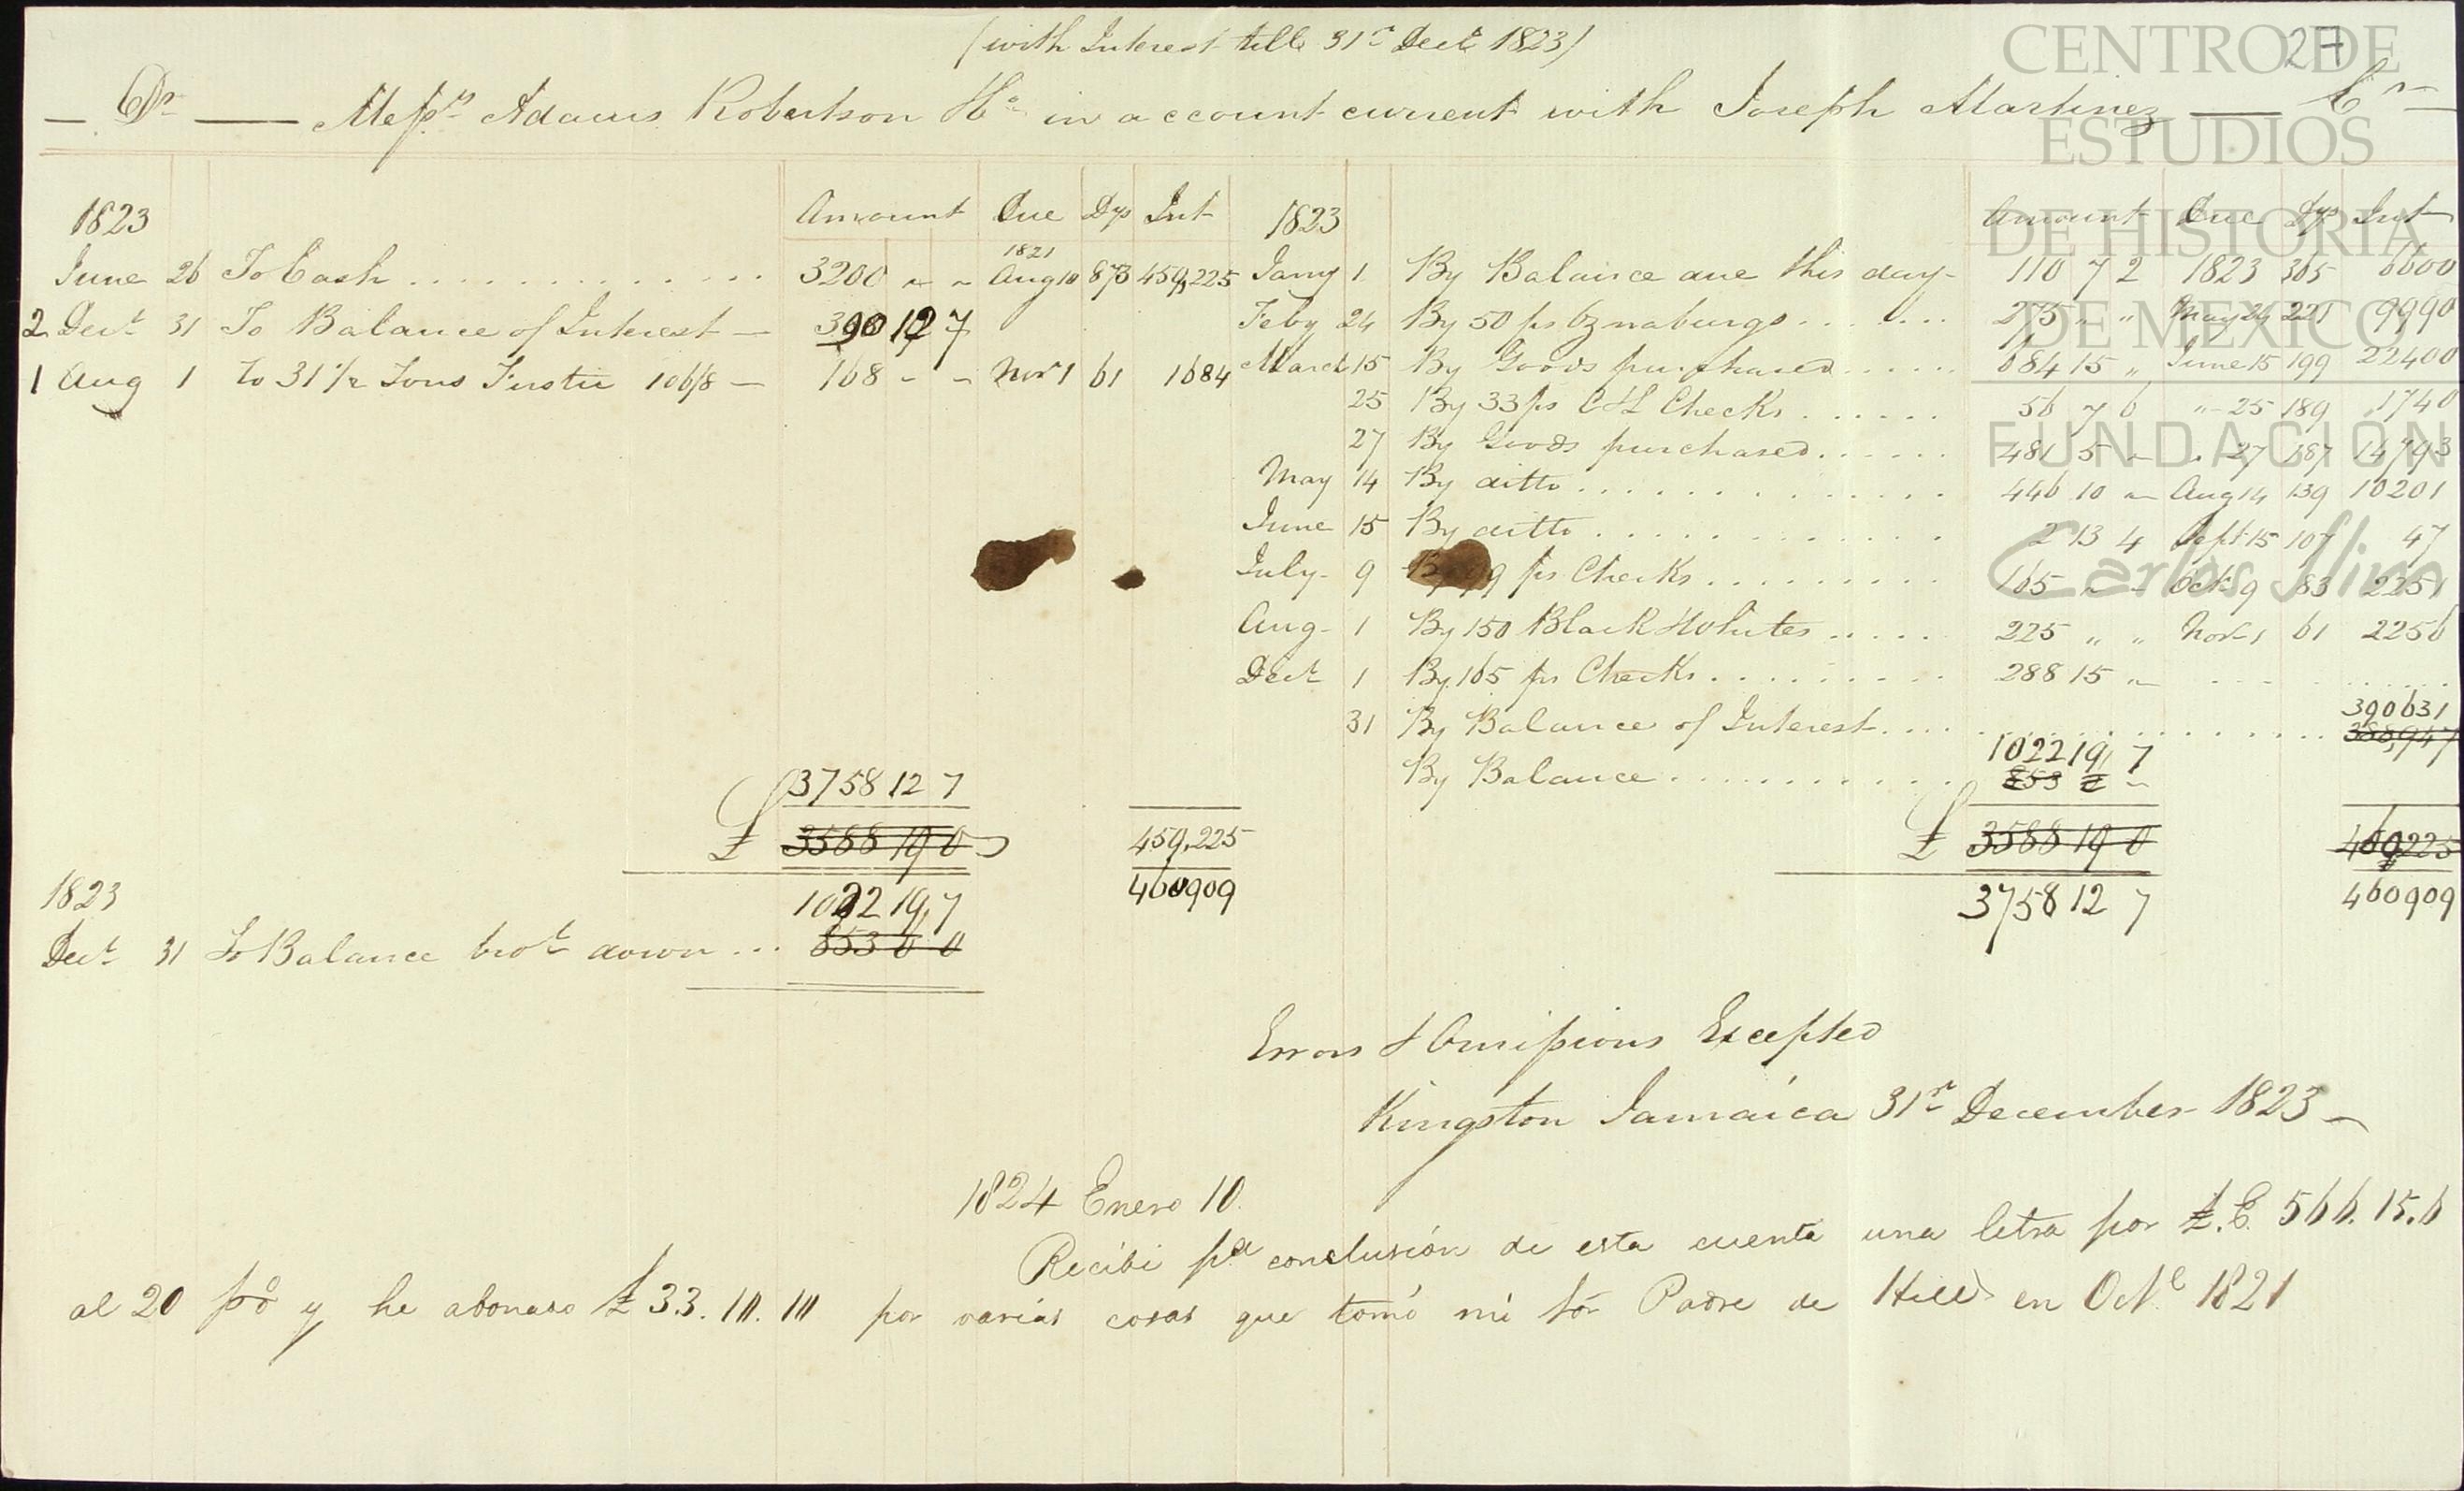 (with Interest till 31st Decr 1823)
27
Dr Messrs Adams Robertson & Co in account current with Joseph Martinez Cr
1823 Amount Due Dys Int
June 26 To Cash 3200 " " 1821 Aug 10 873 459,225
2 Decr 31 To Balance of Interest 390 12 7
1 Aug 1 To 31 1/2 Tons Fustic 106/8 168 - - Novr 1 61 1684
£ 3758 12 7
3588 19 0
459,225
460909
1823
1022 19 7
Decr 31 To Balance brot down 853 0 0
1823 Amount Due Dys Int
Jany 1 By Balance due this day 110 7 2 1823 365 6600
Feby 24 By 50 ps Oznaburgs 275 " " May 24 221 9990
March 15 By Goods purchased 684 15 " June 15 199 22400
25 By 33 ps C&L Checks 56 7 6 " 25 189 1740
27 By Goods purchased 481 5 " " 27 187 14793
May 14 By ditto 446 10 " Aug 14 139 10201
June 15 By ditto 2 13 4 Sept 15 107 47
July 9 By 99 ps Checks 165 " " Octr 9 83 2251
Aug 1 By 150 Black Whites 225 " " Novr 1 61 2256
Decr 1 By 165 ps Checks 288 15 "
31 By Balance of Interest 390631
388,947
By Balance 1022 19 7
853 " "
£ 3588 19 0 459225
3758 12 7 460909
Errors & Omissions Excepted
Kingston Jamaica 31st December 1823
1824 Enero 10.
Recibi pa conclusión de esta cuenta una letra por £.E. 566.15.6
al 20 p% y he abonado £ 33.10.10 por varias cosas que tomó mi Sor Padre de Hill en Octe 1821
CENTRO DE
ESTUDIOS
DE HISTORIA
DE MEXICO
FUNDACIÓN
Carlos Slim